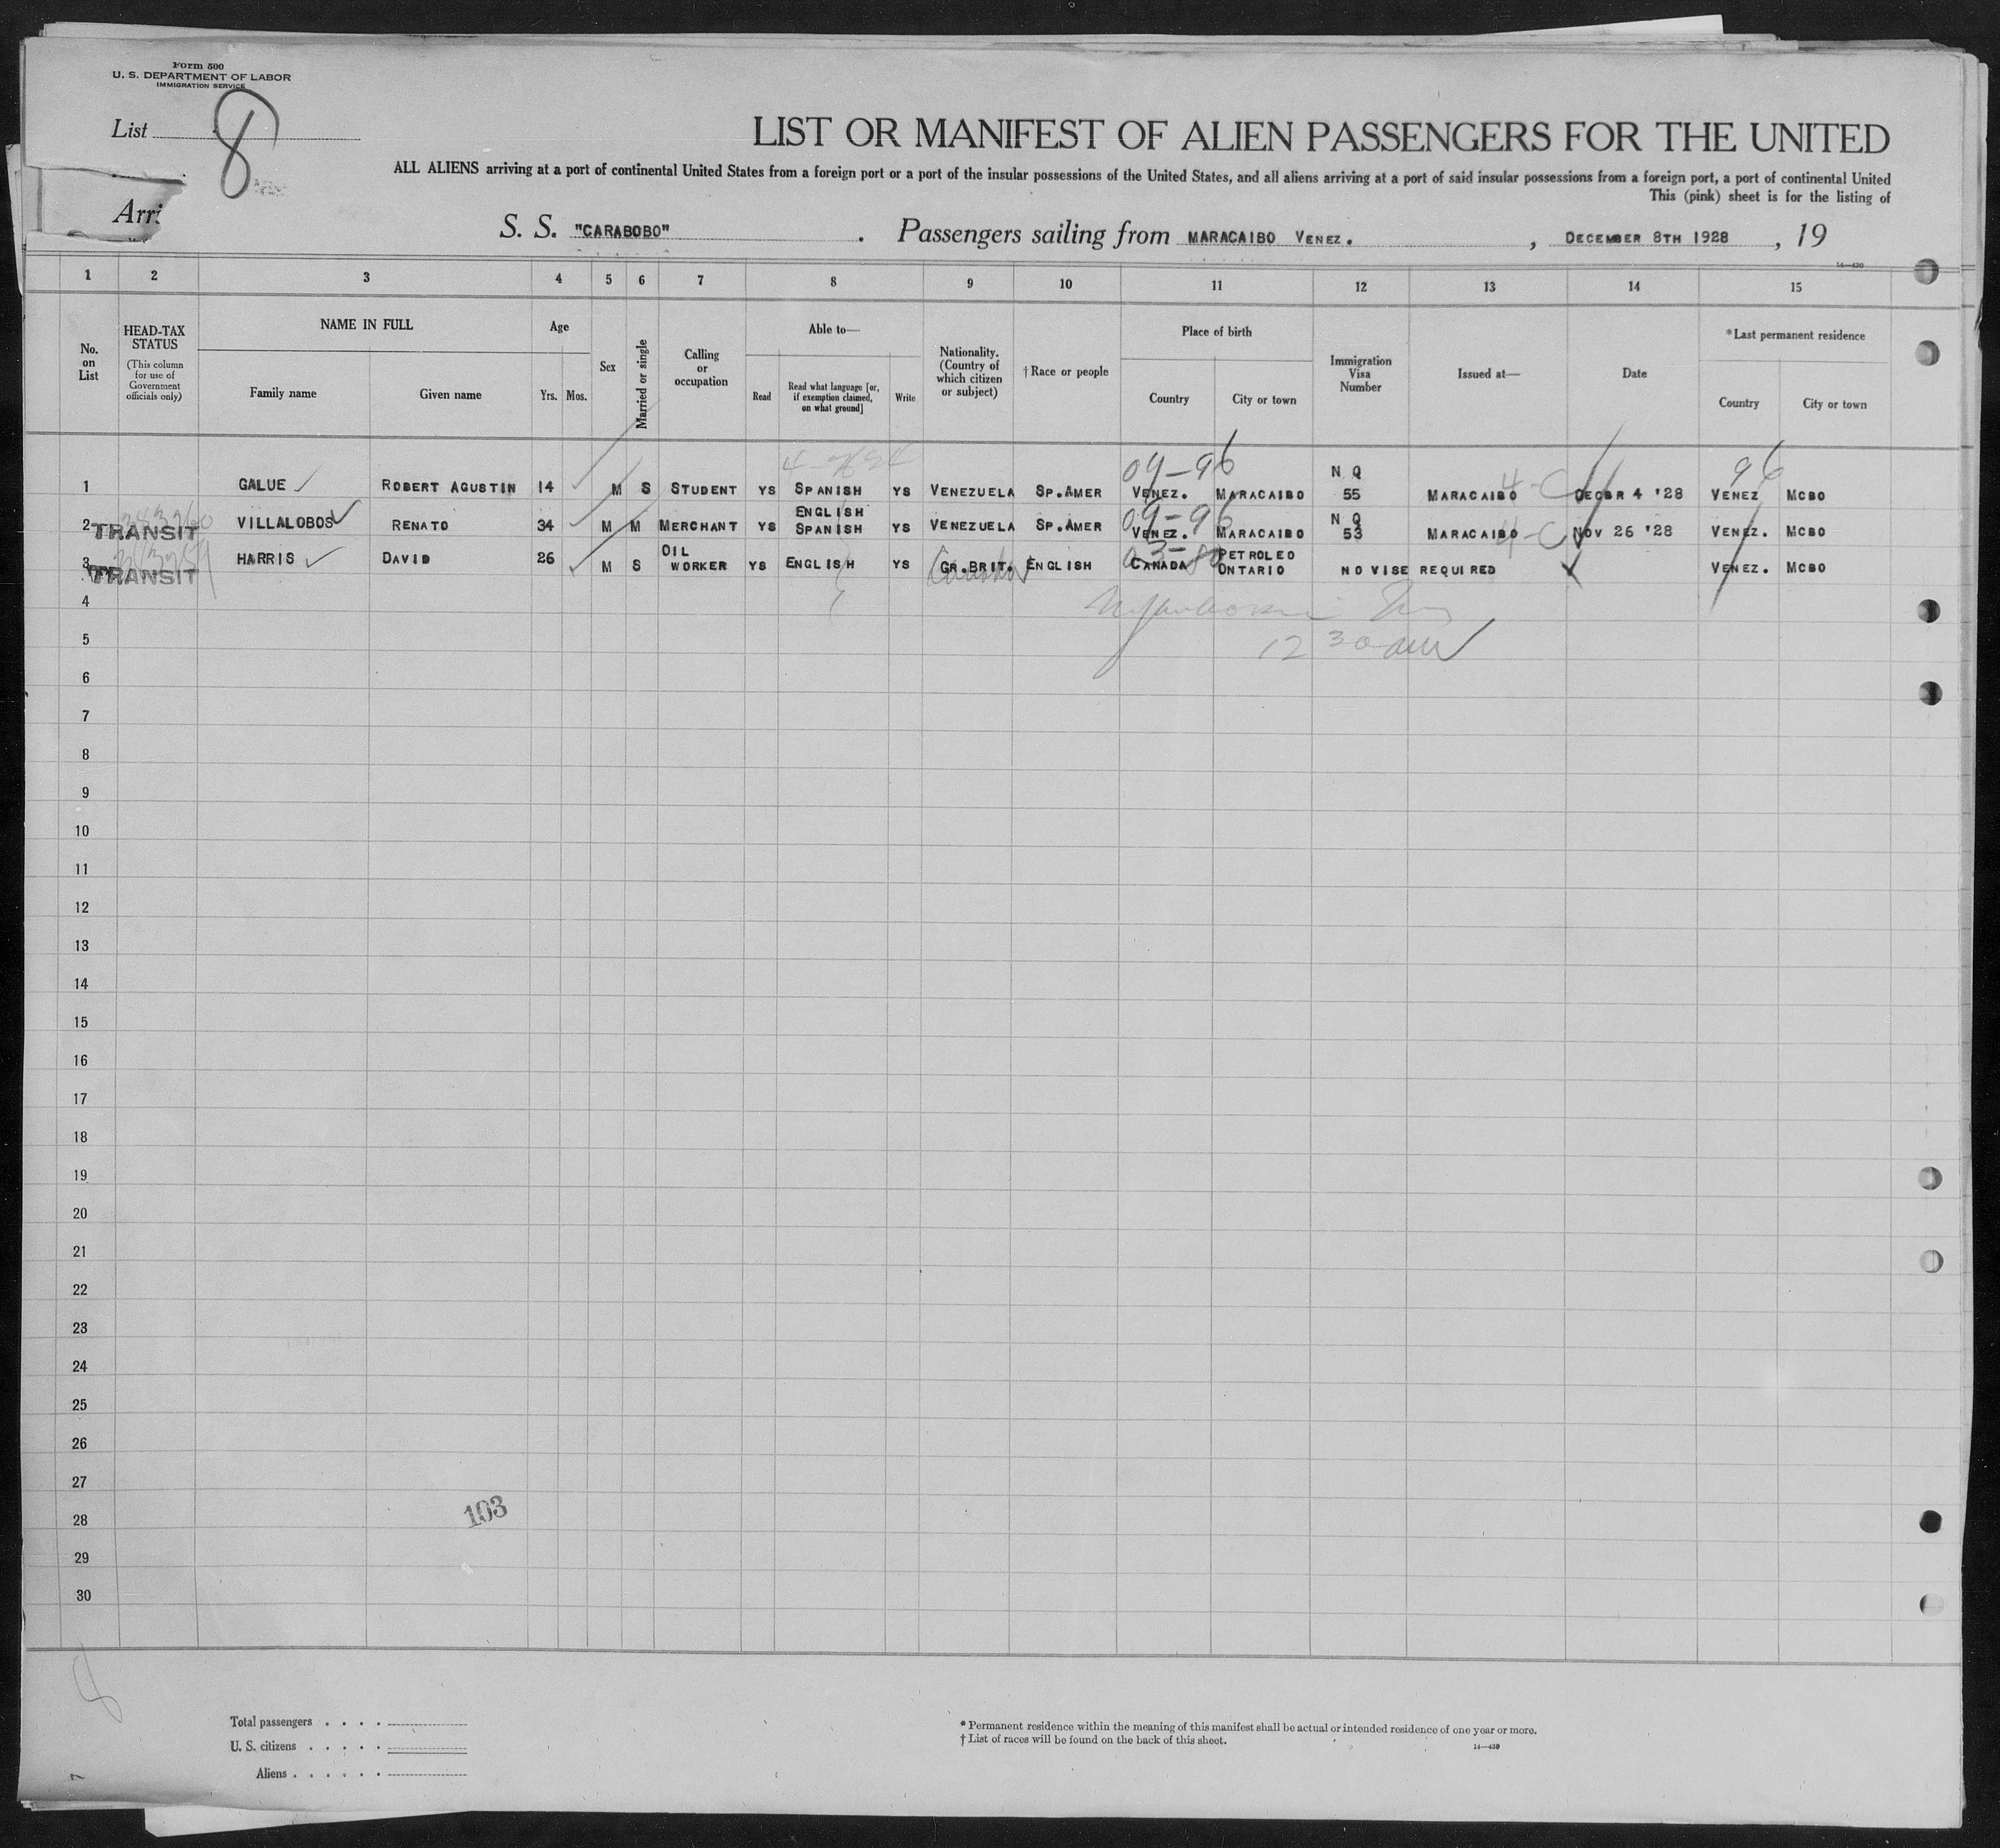 Form 500
U. S. DEPARTMENT OF LABOR
IMMIGRATION SERVICE
List 8
LIST OR MANIFEST OF ALIEN PASSENGERS FOR THE UNITED
ALL ALIENS arriving at a port of continental United States from a foreign port or a port of the insular possessions of the United States, and all aliens arriving at a port of said insular possessions from a foreign port, a port of continental United
This (pink) sheet is for the listing of
Arri
S. S. "CARABOBO" . Passengers sailing from MARACAIBO VENEZ. , DECEMBER 8TH 1928 , 19
14—430
1 2 3 4 5 6 7 8 9 10 11 12 13 14 15
No. on List
HEAD-TAX STATUS
(This column for use of Government officials only)
NAME IN FULL
Family name Given name
Age
Yrs. Mos.
Sex
Married or single
Calling or occupation
Able to—
Read
Read what language [or, if exemption claimed, on what ground]
Write
Nationality. (Country of which citizen or subject)
† Race or people
Place of birth
Country City or town
Immigration Visa Number
Issued at—
Date
* Last permanent residence
Country City or town
4-7624 09-96 96
1 GALUE ROBERT AGUSTIN 14 M S STUDENT YS SPANISH YS VENEZUELA SP.AMER VENEZ. MARACAIBO N Q 55 MARACAIBO DECBR 4 '28 VENEZ MCBO
09-96
2 TRANSIT VILLALOBOS RENATO 34 M M MERCHANT YS ENGLISH SPANISH YS VENEZUELA SP.AMER VENEZ. MARACAIBO N Q 53 MARACAIBO NOV 26 '28 VENEZ. MCBO
3 TRANSIT HARRIS DAVID 26 M S OIL WORKER YS ENGLISH YS GR.BRIT. ENGLISH CANADA PETROLEO ONTARIO NO VISE REQUIRED VENEZ. MCBO
4
5 12 30 am
6
7
8
9
10
11
12
13
14
15
16
17
18
19
20
21
22
23
24
25
26
27
28 103
29
30
8
Total passengers . . . .
U. S. citizens . . . . .
Aliens . . . . . .
* Permanent residence within the meaning of this manifest shall be actual or intended residence of one year or more.
† List of races will be found on the back of this sheet.
14—430